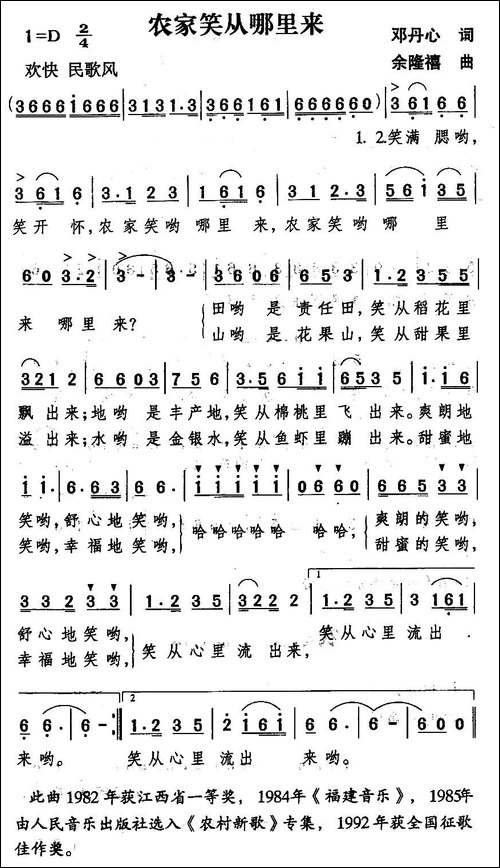 农家笑从哪里来
1=D 2/4
邓丹心 词
欢快 民歌风
余隆禧 曲
(3666i666 | 3131.3 | 3666161 | 6666660) | 3 61 6 6 |
1. 2.笑满 腮哟,
3 61 6 | 3.1 2 3 | 1 616 | 3.1 2 3 | 5 6 i 3 5 |
笑开 怀,农家笑哟 哪里 来,农家笑哟 哪 里
6 0 3.2 | 3 - | 3 - | 3 6 0 6 | 6 5 3 | 1.2 3 5 5 |
来 哪里来?
田哟 是 责任田,笑从稻花里
山哟 是 花果山,笑从甜果里
3 2 1 2 | 6 6 0 3 | 7 5 6 | 3.5 6 i i | 6 5 3 5 | i.i 6 |
飘 出来;地哟 是丰产地,笑从棉桃里 飞 出来。爽朗地
溢 出来;水哟 是金银水,笑从鱼虾里 蹦 出来。甜蜜地
i i. | 6.6 3 | 6 6. | i i i i i | 0 6 6 0 | 6 6 5 3 |
笑哟,舒心地笑哟,
哈哈哈哈哈 哈哈,
爽朗的笑哟,
笑哟,幸福地笑哟,
甜蜜的笑哟,
3 3 2 3 3 | 1.2 3 5 | 3 2 2 2 | 2. 0 | 1.2 3 5 | i 6 5 |
舒心地笑哟,
笑从心里流 出来,
笑从心里 流出
幸福地笑哟,
6 6. | 6 - :| 1.2 3 5 | 2 i 6 i | 6 6. | 6 - | 6 0 0 |
来哟。 笑从心里 流出 来哟。
此曲1982年获江西省一等奖,1984年《福建音乐》,1985年
由人民音乐出版社选入《农村新歌》专集,1992年获全国征歌
佳作奖。